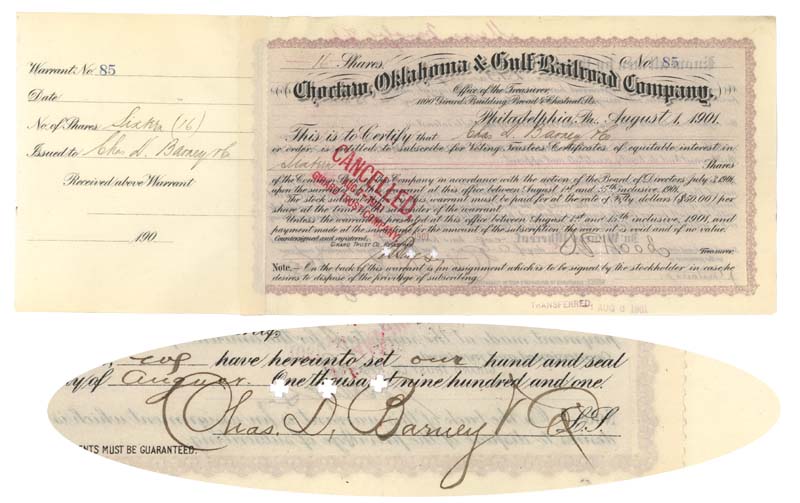 Warrant No 85
Date
No. of Shares Sixteen (16)
Issued to Chas D. Barney & Co
Received above Warrant
190
16 Shares. No 85
Choctaw, Oklahoma & Gulf Railroad Company,
Office of the Treasurer,
1100 Girard Building Broad & Chestnut Sts.
Philadelphia, Pa., August 1, 1901.
This is to Certify that Chas D. Barney & Co
or order, is entitled to subscribe for Voting Trustees Certificates of equitable interest in
Sixteen Shares
of the Common Stock of the Company in accordance with the action of the Board of Directors July 2d 1901
upon the surrender of this warrant at this office between August 1st and 15th inclusive, 1901.
The stock subscribed for by this warrant must be paid for at the rate of Fifty dollars ($50.00) per
share at the time of the surrender of the warrant
Unless the warrant be surrendered at this office between August 1st and 15th inclusive, 1901, and
payment made at the same time for the amount of the subscription the warrant is void and of no value.
Countersigned and registered,
GIRARD TRUST CO. REGISTRAR
Treasurer
CANCELLED
AUG 1901
GIRARD TRUST COMPANY
Note.- On the back of this warrant is an assignment which is to be signed by the stockholder in case he
desires to dispose of the privilege of subscribing.
TRANSFERRED. AUG 6 1901
have hereunto set our hand and seal
day of August One thousand nine hundred and one.
Chas. D. Barney & Co L.S.
NTS MUST BE GUARANTEED.